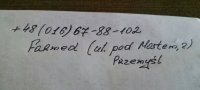 +48(016)67-88-102
Farmed (ul. pod Mostem, 2)
Przemyśl